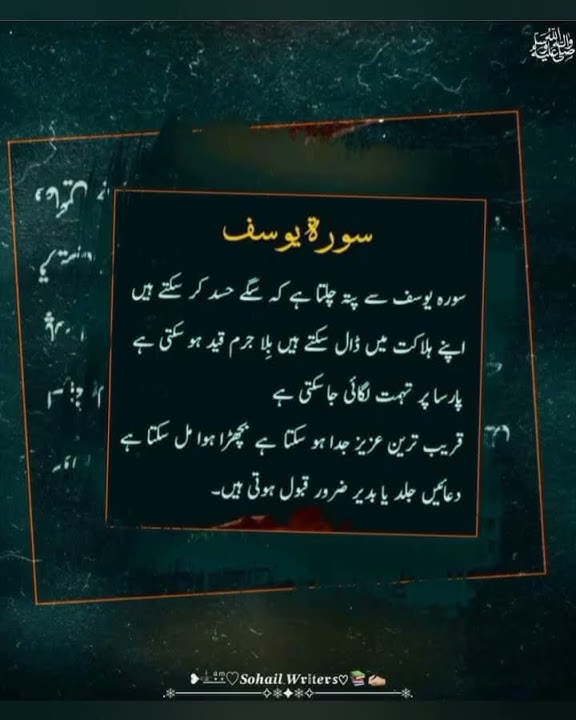 ﷺ
سورۃ یوسف
سورہ یوسف سے پتہ چلتا ہے کہ سگے حسد کر سکتے ہیں
اپنے ہلاکت میں ڈال سکتے ہیں بِلا جرم قید ہو سکتی ہے
پارسا پر تہمت لگائی جا سکتی ہے
قریب ترین عزیز جدا ہو سکتا ہے بچھڑا ہوا مل سکتا ہے
دعائیں جلد یا بدیر ضرور قبول ہوتی ہیں۔
am♡Sohail_Writers♡📚✍🏻